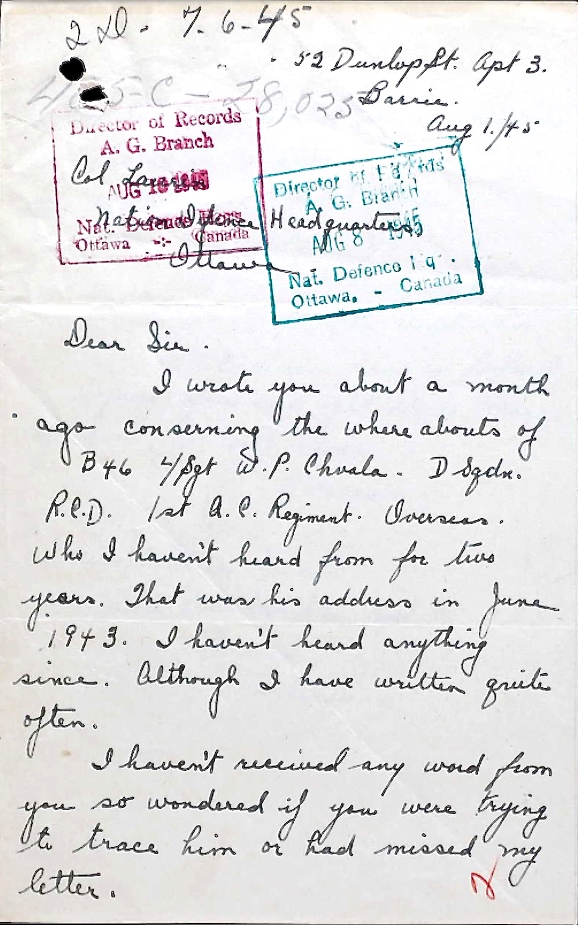 2 D. 7-6-45
52 Dunlop St. Apt 3.
405-C-28,025
Barrie.
Aug 1./45
Director of Records
A. G. Branch
AUG 1945
Nat. Defence Hqrs.
Ottawa -:- Canada
Director of Records
A. G. Branch
AUG 8 1945
Nat. Defence Hq .
Ottawa. - Canada
Col.
National Defence Headquarters
Ottawa
Dear Sir.
I wrote you about a month
ago conserning the where abouts of
B46 L/Sgt W. P. Chvala. D Sqdn.
R.C.D. 1st A.C. Regiment. Overseas.
Who I haven't heard from for two
years. That was his address in June
1943. I haven't heard anything
since. Although I have written quite
often.
I haven't received any word from
you so wondered if you were trying
to trace him or had missed my
letter.
2